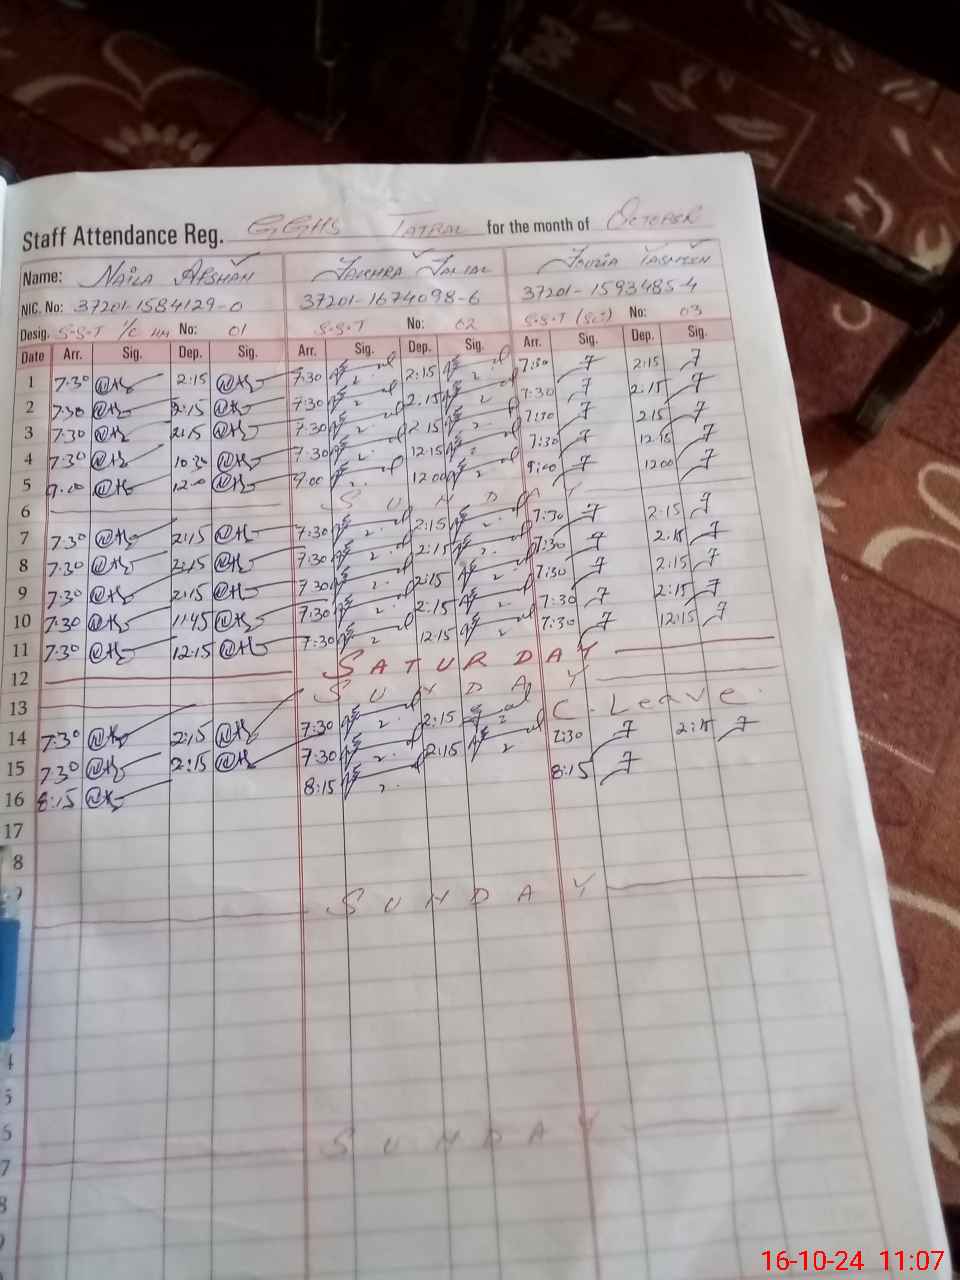 Staff Attendance Reg. GGHS TATRAL for the month of OCTOBER
Name: NAILA AFSHAN
NIC. No: 37201-1584129-0 37201-1674098-6 37201-1593485-4
Desig. S.S.T I/C HM No: 01 S.S.T No: 02 S.S.T (Sci) No: 03
Date Arr. Sig. Dep. Sig. Arr. Sig. Dep. Sig. Arr. Sig. Dep. Sig.
1 7:30 2:15 7:30 2:15 7:30 2:15
2 7:30 2:15 7:30 2:15 7:30 2:15
3 7:30 2:15 7:30 2:15 7:30 2:15
4 7:30 10:30 7:30 12:15 7:30 12:15
5 9:00 12:00 9:00 12:00 9:00 12:00
6 SUNDAY
7 7:30 2:15 7:30 2:15 7:30 2:15
8 7:30 2:15 7:30 2:15 7:30 2:15
9 7:30 2:15 7:30 2:15 7:30 2:15
10 7:30 11:45 7:30 2:15 7:30 2:15
11 7:30 12:15 7:30 12:15 7:30 12:15
12 SATURDAY
13 SUNDAY
14 7:30 2:15 7:30 2:15 C. Leave.
15 7:30 2:15 7:30 2:15 7:30 2:15
16 8:15 8:15 8:15
17
8
SUNDAY
4
5
6 SUNDAY
7
8
16-10-24 11:07